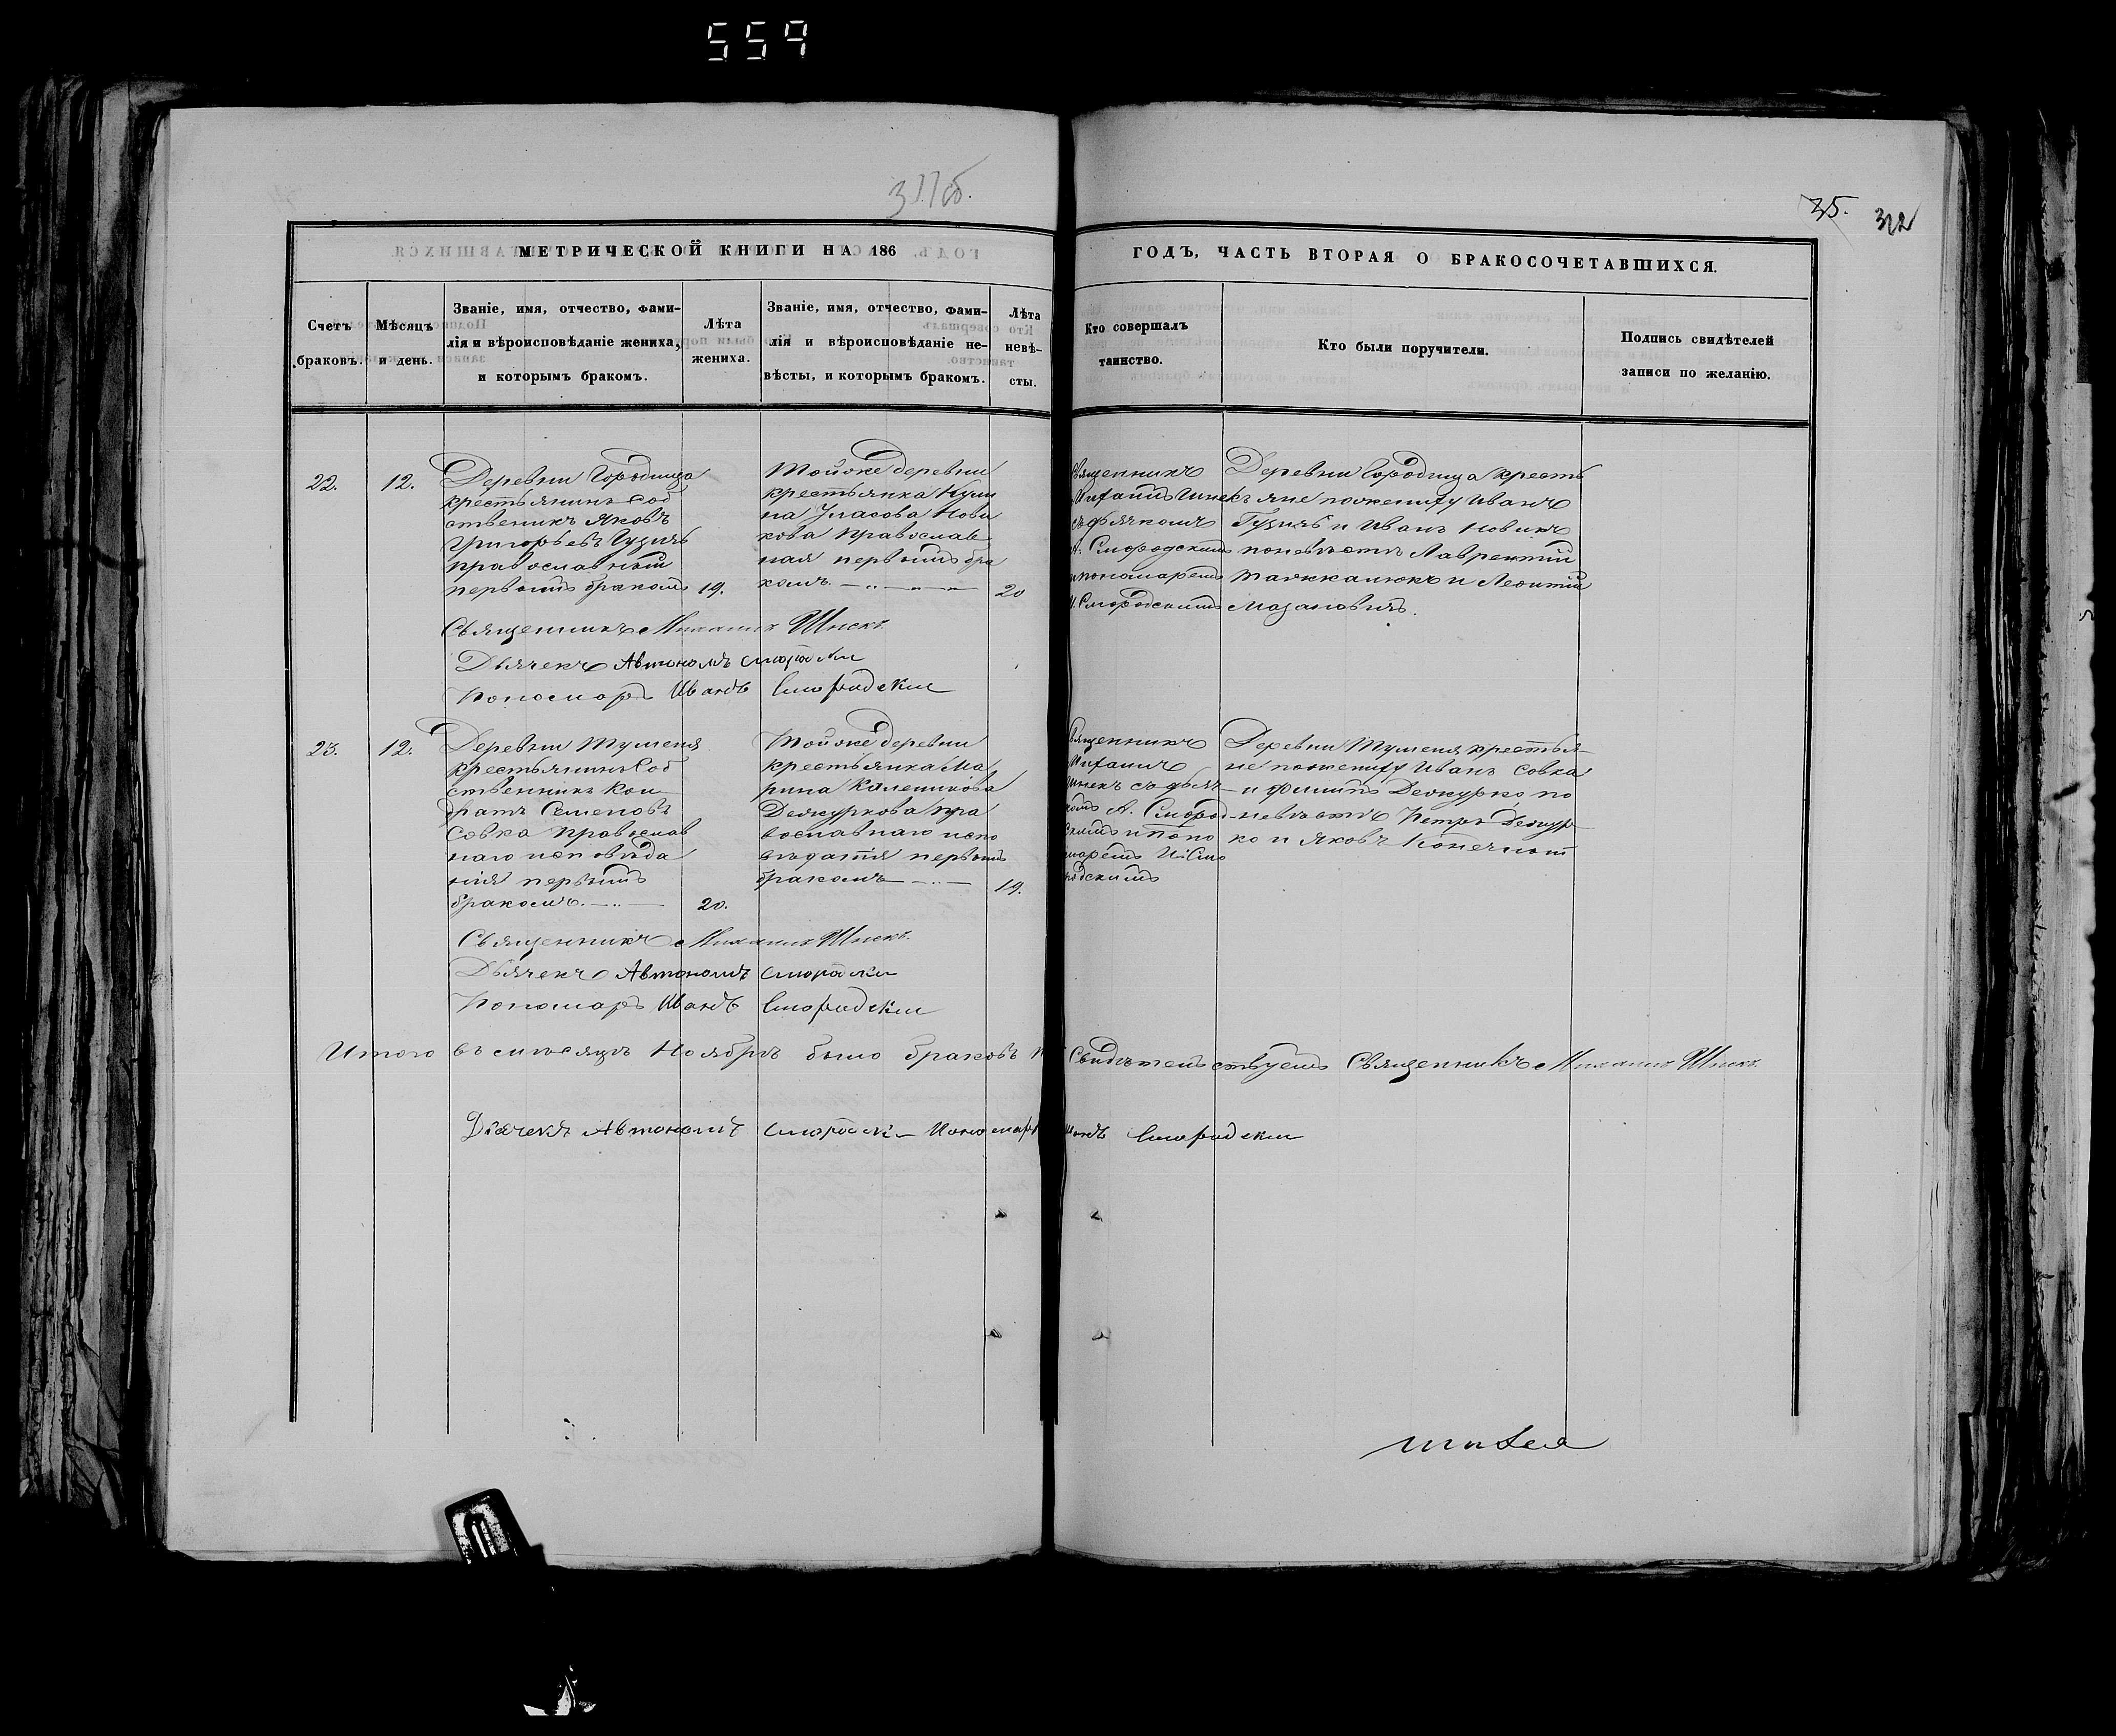 559
35.
312
МЕТРИЧЕСКОЙ КНИГИ НА 186
ГОДЪ, ЧАСТЬ ВТОРАЯ О БРАКОСОЧЕТАВШИХСЯ.
Счетъ
браковъ.
Мѣсяцъ
и день.
Званіе, имя, отчество, фами-
лія и вѣроисповѣданіе жениха,
и которымъ бракомъ.
Лѣта
жениха.
Званіе, имя, отчество, фами-
лія и вѣроисповѣданіе не-
вѣсты, и которымъ бракомъ.
Лѣта
невѣ-
сты.
Кто совершалъ
таинство.
Кто были поручители.
Подпись свидѣтелей
записи по желанію.
22.
12.
Деревни Городища
крестьянинъ соб
ственикъ Яковъ
Григорьевъ Гузичъ
православный
первымъ бракомъ
19.
Тойже деревни
крестьянка
на Уласова Нови
кова Православ
ная первымъ бра
комъ
20
Священникъ
Михаилъ Шнекъ
съ дьячкомъ
А. Смородскимъ
и пономаремъ
И. Смородскимъ
Деревни Городища кресть
яне по жениху Иванъ
Гузичъ и Иванъ Новикъ
по невѣстѣ Лаврентій
и Леонтій
Мазановичъ.
Священникъ Михаилъ Шнекъ
Дьячекъ Автономъ Смородски
Пономарь Иванъ Смородскии
23.
12.
Деревни Тушеня
крестьянинъ Соб
ственникъ Кон
дратъ Семеновъ
Совка Православ
наго исповѣда
нія первымъ
бракомъ.
20.
Тойже деревни
крестьянка Ма
рина
Дежуркова пра
вославнаго испо
вѣданія первымъ
бракомъ
19.
Священникъ
Михаилъ
Шнекъ съ дьяч
комъ А. Смород
скимъ и поно
маремъ И. Смо
родскимъ
Деревни Тушеня крестья-
не по жениху Иванъ Совка
и Филипъ Дежурко, по
невѣстѣ Петръ Дежур
ко и Яковъ
Священникъ Михаилъ Шнекъ.
Дьячекъ Автономъ Смородски
Пономарь Иванъ Смородскии
Итого въ мѣсяцѣ Ноябрѣ было браковъ
Свидѣтельствуемъ Священникъ Михаилъ Шнекъ.
Діячекъ Автономъ Смородски Пономарь Иванъ Смородскии